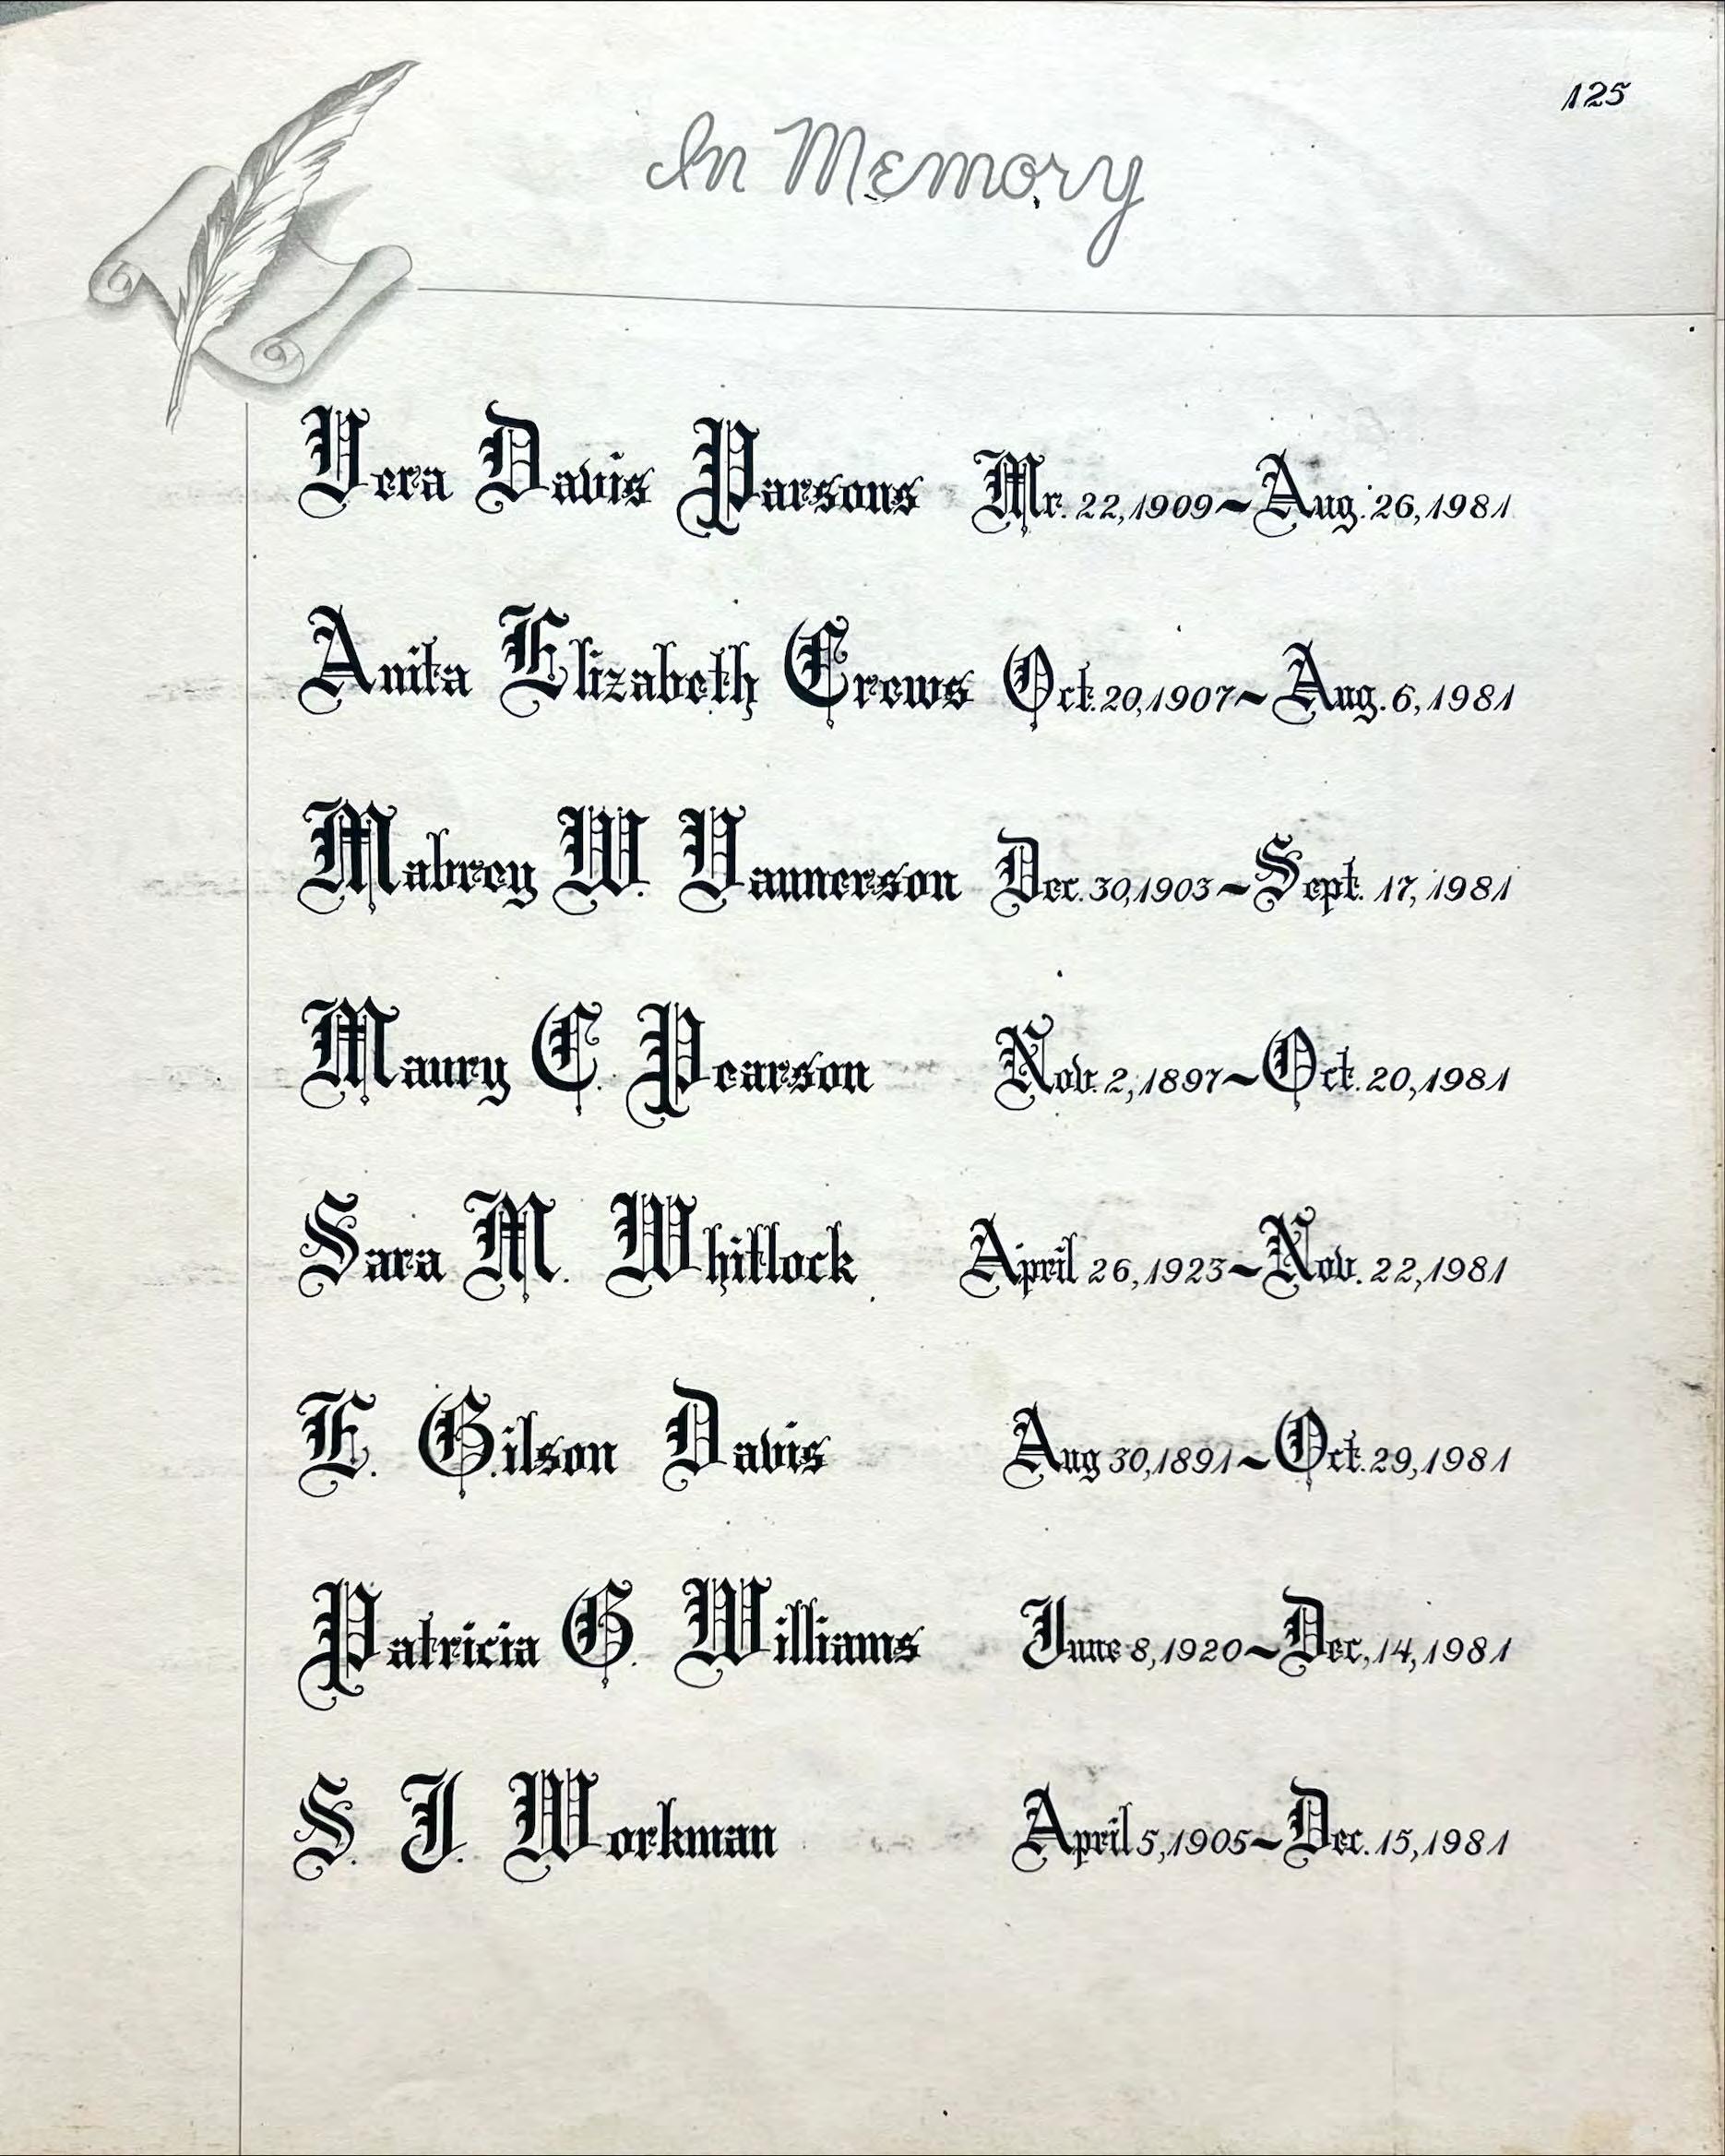 125
In Memory
Vera Davis Parsons Mr. 22, 1909~Aug. 26, 1981
Anita Elizabeth Crews Oct. 20, 1907~Aug. 6, 1981
Mabrey W. Vaunerson Dec. 30, 1903~Sept. 17, 1981
Maury C. Pearson Nov. 2, 1897~Oct. 20, 1981
Sara M. Whitlock April 26, 1923~Nov. 22, 1981
E. Gilson Davis Aug 30, 1891~Oct. 29, 1981
Patricia G. Williams June 8, 1920~Dec, 14, 1981
S. J. Workman April 5, 1905~Dec. 15, 1981